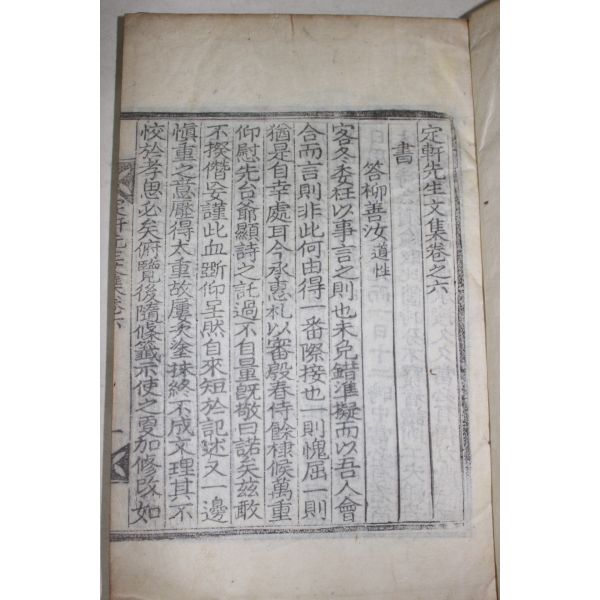 定軒先生文集卷之六
書
答柳善汝道性
客冬委枉以事言之則也未免錯準擬而以吾人會
合而言則非此何由得一番際接也一則愧屈一則
猶是自幸處耳今承惠札以審殷春侍餘棣候萬重
仰慰先台爺顯詩之託過不自量旣敬曰諾矣玆敢
不揆僭妄謹此血斲仰呈然自來短於記述又一邊
愼重之意壓得太重故屢爻塗抹終不成文理其不
恔於孝思必矣俯覽後隨條籤示使之更加修改如
定軒先生文集卷六
一